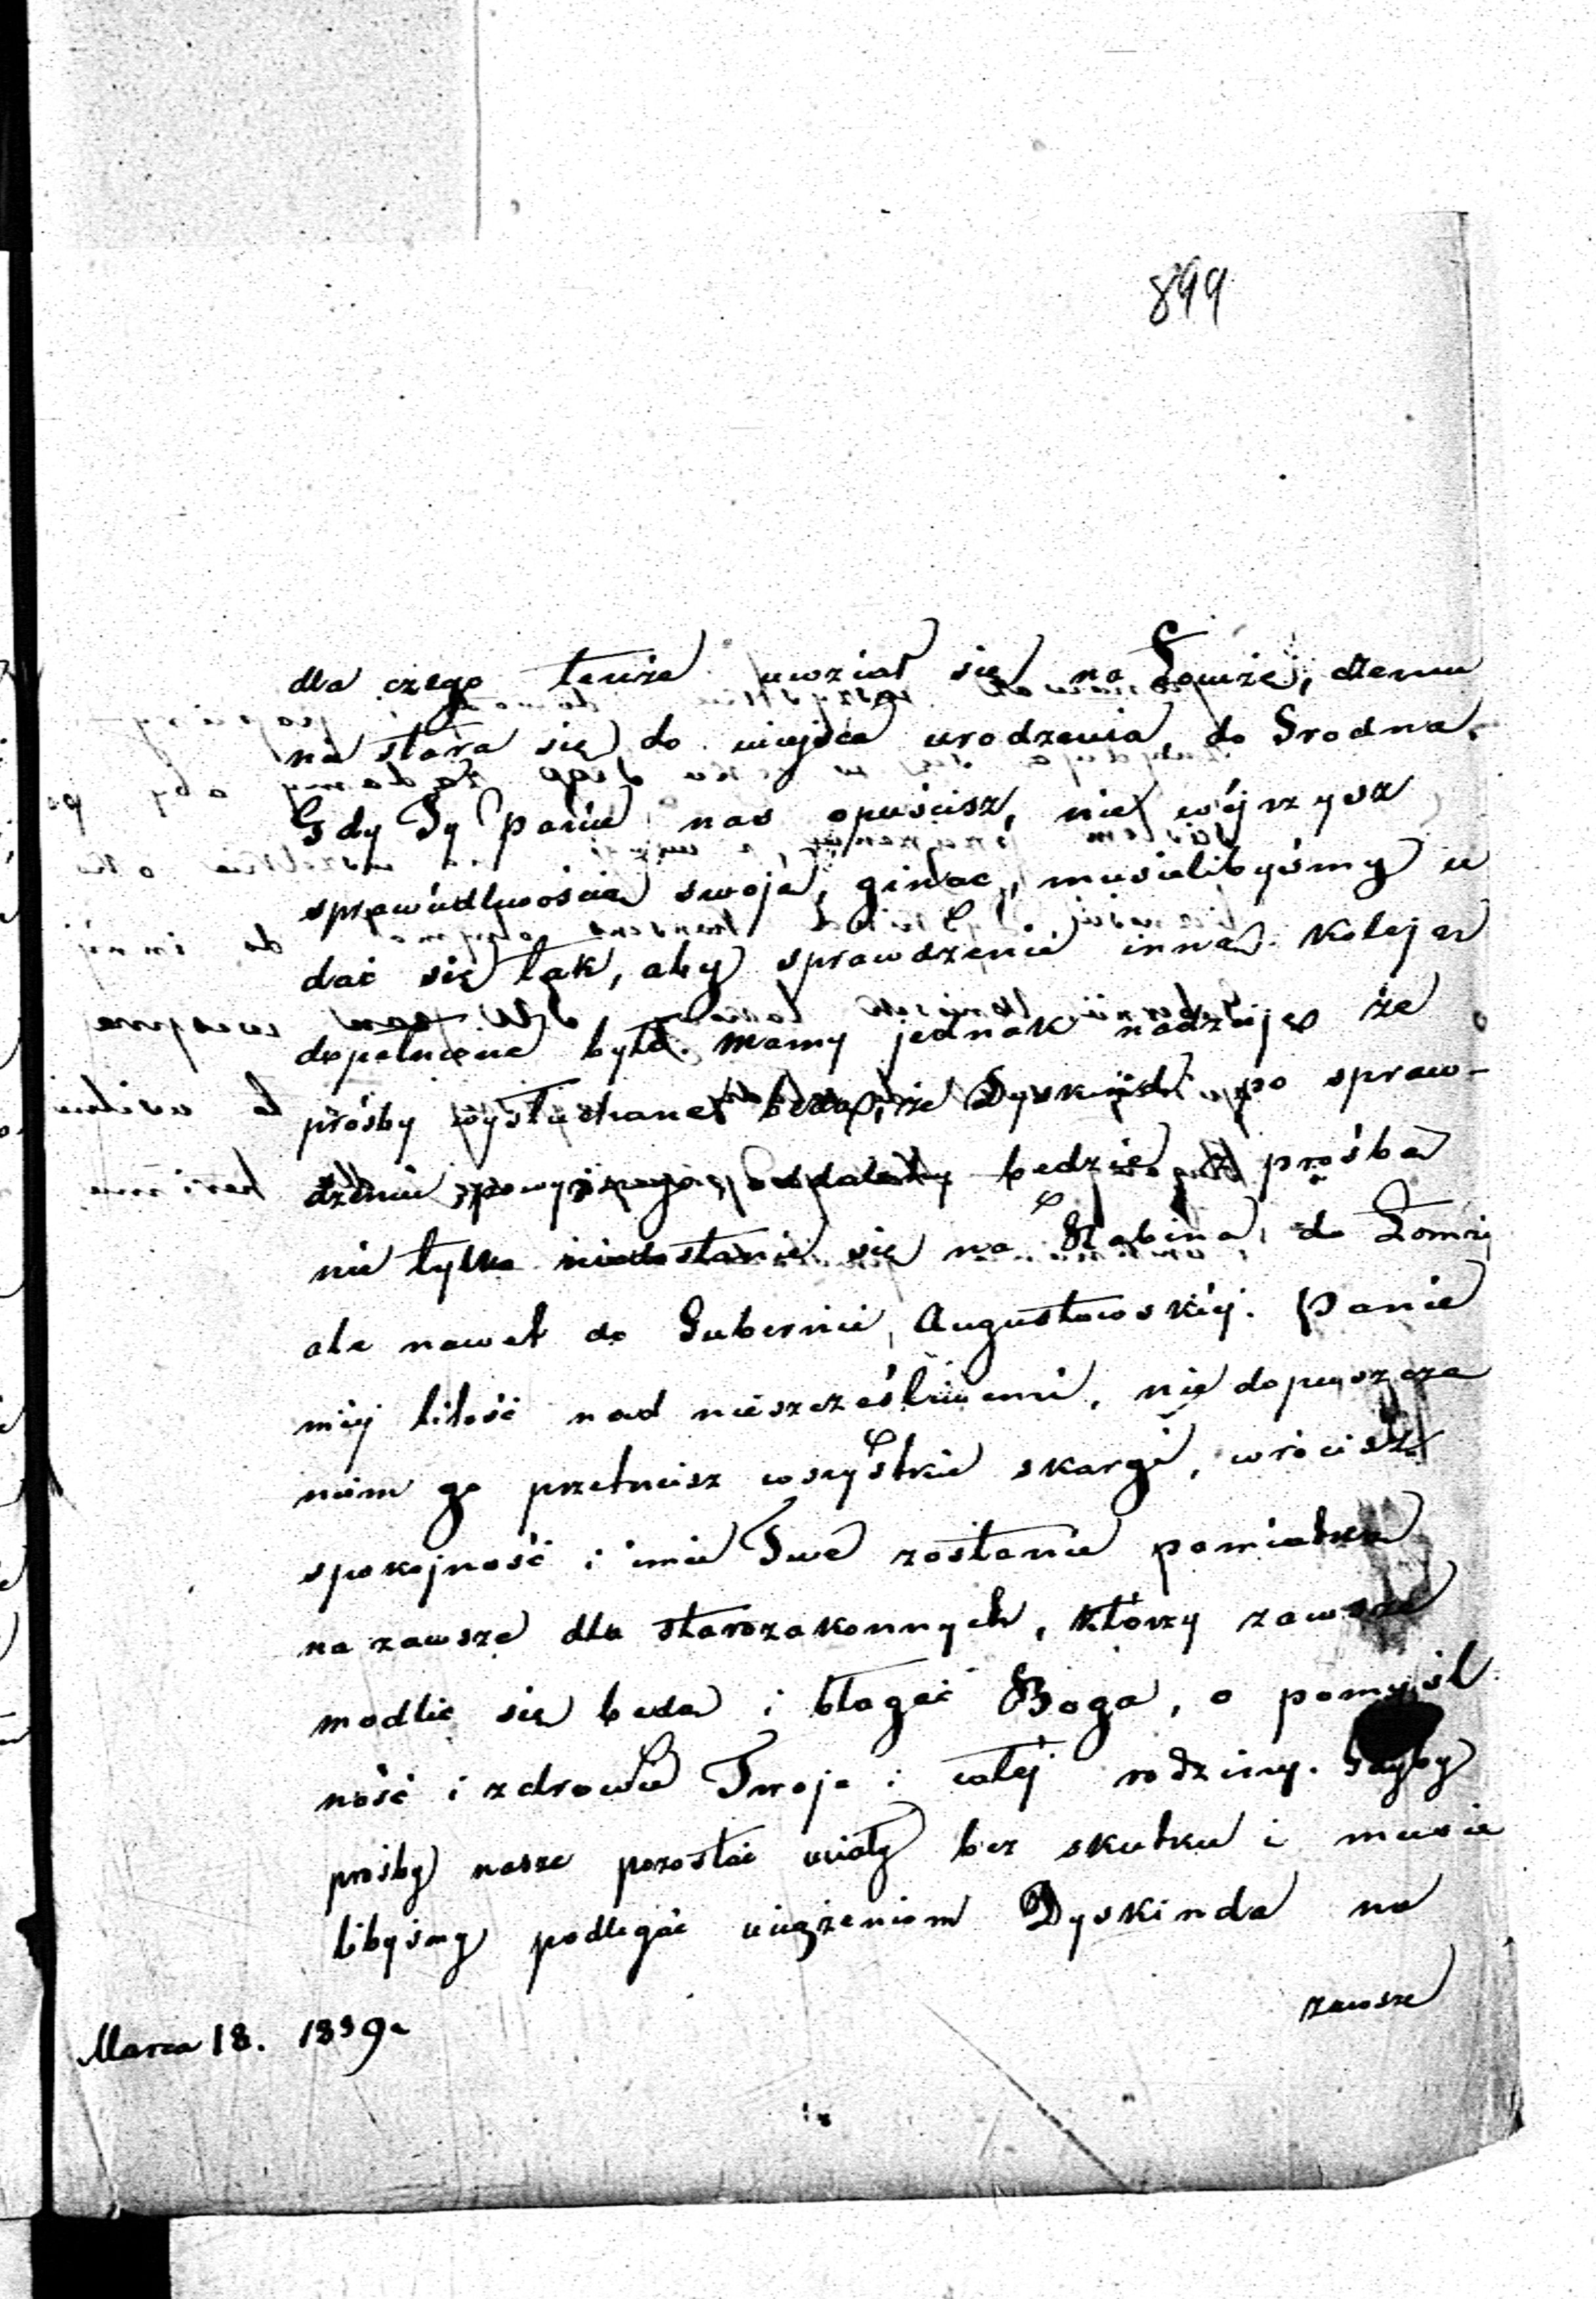 899
dla czego tenże uwziął się na Łomżę, czemu
nie stara się do miejsca urodzenia do Grodna.
Gdy Ty Panie nas opuścisz, nie wéjrzysz
sprawiedliwoscią swoją, ginąc, musielibyśmy u
dać się tak, aby sprawdzenie inną koleją
dopełnione było. Mamy jednak nadzieję że
prośby wysłuchane będą, że Dyskind po spraw-
dzeniu powyższego, oddalony będzie z prośbą
nie tylko niedostanie się na Rabina do Łomży
ale nawet do Gubernii Augustowskiéj. Panie
miéj litość nad nieszczęśliwemi, nie dopuszcza
nim go przetniesz wszystkie skargi, wrócisz
spokojność i imie Twe zostanie pamiątką
na zawsze dla starozakonnych, którzy zawsze
modlić się będą i błagać Boga, o pomyśl
ność i zdrowie Twoje i całéj rodziny. Gdyby
prośby nasze pozostać miały bez skutku i musie
libyśmy podlegać uciążeniom Dyskinda na
zawsze
Marca 18. 1839.